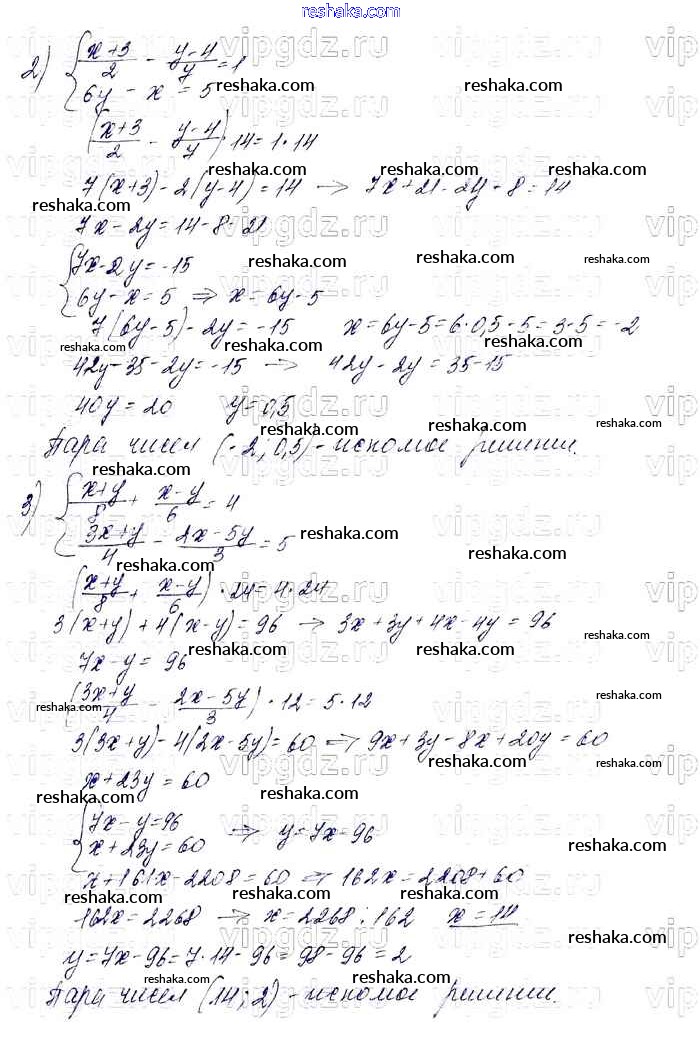 reshaka.com
2) { (x+3)/2 - (y-4)/7 = 1
6y - x = 5
((x+3)/2 - (y-4)/7) · 14 = 1 · 14
7(x+3) - 2(y-4) = 14 → 7x+21-2y+8=14
7x-2y = 14-8-21
{ 7x-2y = -15
6y-x = 5 ⇒ x = 6y-5
7(6y-5)-2y = -15 x = 6y-5 = 6·0,5-5 = 3-5 = -2
42y-35-2y = -15 → 42y-2y = 35-15
40y = 20 y = 0,5
Пара чисел (-2; 0,5) - искомое решении.
3) { (x+y)/8 + (x-y)/6 = 4
(3x+y)/4 - (2x-5y)/3 = 5
((x+y)/8 + (x-y)/6) · 24 = 4·24
3(x+y) + 4(x-y) = 96 → 3x+3y+4x-4y = 96
7x-y = 96
((3x+y)/4 - (2x-5y)/3) · 12 = 5·12
3(3x+y)-4(2x-5y) = 60 ⇒ 9x+3y-8x+20y = 60
x+23y = 60
{ 7x-y = 96
x+23y = 60 ⇒ y = 7x-96
x+161x-2208 = 60 ⇒ 162x = 2208+60
162x = 2268 → x = 2268:162 x = 14
y = 7x-96 = 7·14-96 = 98-96 = 2
Пара чисел (14; 2) - искомое решении.